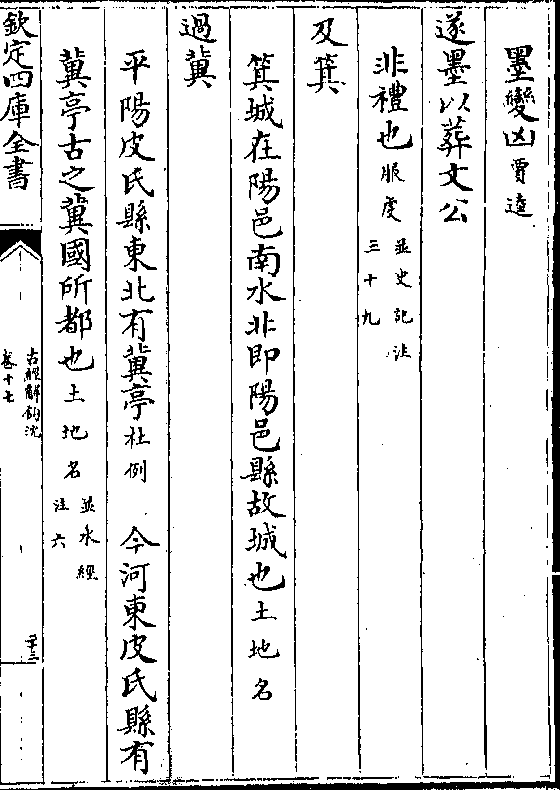 墨變凶賈逵
遂墨以葬文公
非禮也服虔並史記注三十九
及箕
箕城在陽邑南水北即陽邑縣故城也土地名
過冀
平陽皮氏縣東北有冀亭杜例　今河東皮氏縣有
冀亭古之冀國所都也土地名並水經注六
欽定四庫全書
古經解鉤沈
卷十七
二十三